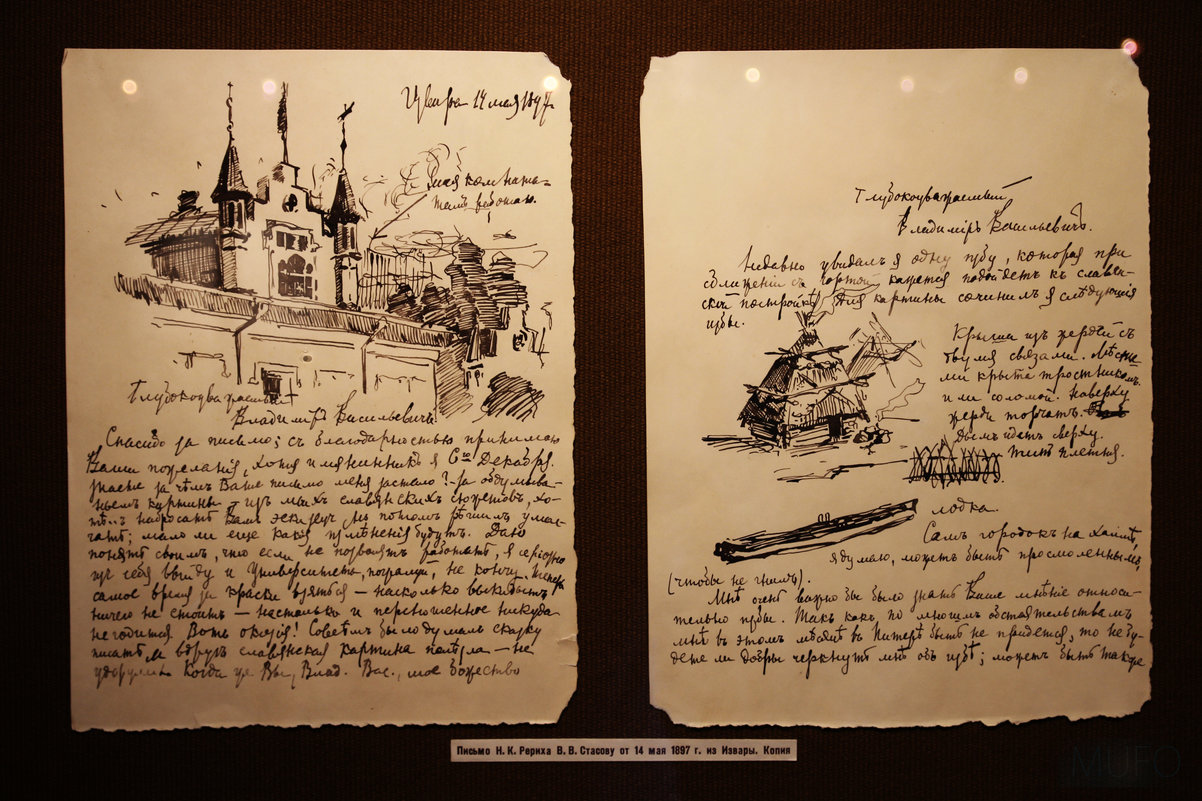 Извара 14 мая 1897.
Моя комната-
тамъ работаю.
Глубокоуважаемый
Владиміръ Васильевичъ.
Спасибо за письмо; съ благодарностью принимаю
Ваши пожеланія, хотя имянинникъ я 6го Декабря.
Знаете за чѣмъ Ваше письмо меня застало? - За обдумыва-
ньемъ картины - изъ моихъ славянскихъ сюжетовъ, хо-
набросать Вамъ эскизецъ, но потомъ рѣшилъ умол-
чать; мало ли еще какія измѣненія будутъ. Даю
понять своимъ, что если не позволятъ работать, я серіозно
изъ себя выйду и Университета, пожалуй, не кончу. Теперь
самое время за краски взяться — насколько выкидышъ
ничего не стоитъ — настолько и переношенное никуда
не годится. Вотъ оказія! Совсѣмъ было думалъ сказку
писать, и вдругъ славянская картина полѣзла — не
удержишь. Когда же Вы, Влад. Вас., мое божество
Глубокоуважаемый
Владиміръ Васильевичъ.
Недавно увидалъ я одну избу, которая при
сближеніи съ юртой кажется подойдетъ къ славян-
ской постройкѣ. Для картины сочинилъ я слѣдующія
избы.
Крыши изъ жердей съ
двумя связами. Мѣста-
ми крыта тростникомъ
или соломой. Наверху
жерди торчатъ.
Дымъ идетъ сверху.
Типъ плетня.
лодка.
Самъ городокъ на холмѣ,
я думаю, можетъ быть просмоленнымъ,
(чтобы не гнилъ).
Мнѣ очень важно бы было знать Ваше мнѣніе относи-
тельно избы. Такъ какъ, по обстоятельствамъ
мнѣ въ этомъ мѣсяцѣ въ Питерѣ быть не придется, то не бу-
дете ли добры черкнуть мнѣ объ избѣ; можетъ быть также
Письмо Н. К. Рериха В. В. Стасову от 14 мая 1897 г. из Извары. Копия
MUFO